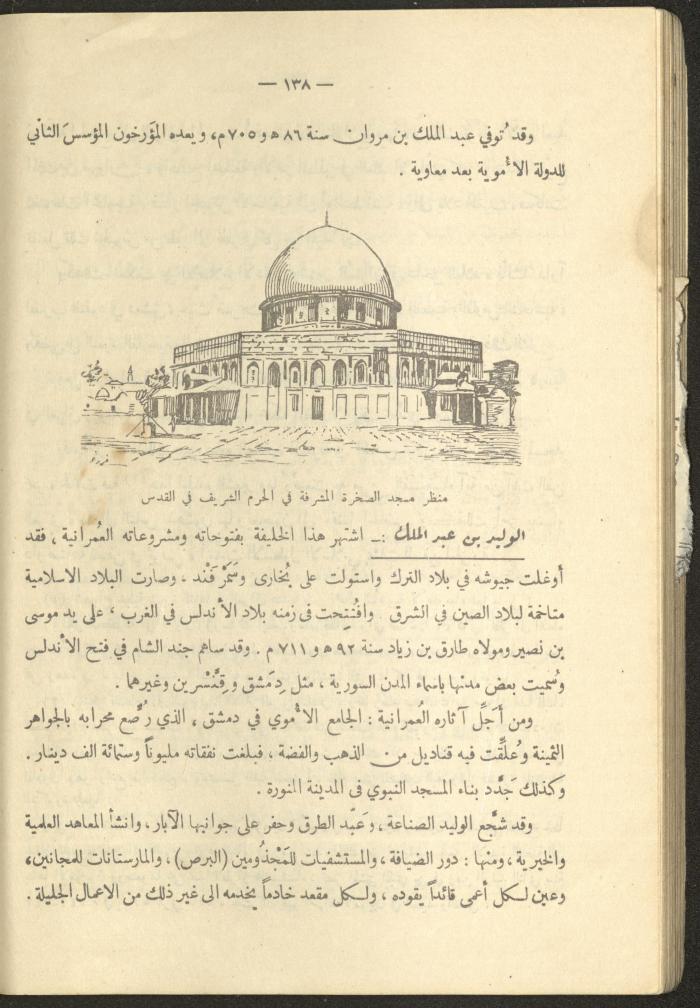 — ١٣٨ —
وقد تُوفي عبد الملك بن مروان سنة ٨٦ ه و ٧٠٥ م، ويعده المؤرخون المؤسسَ الثاني
للدولة الأُموية بعد معاوية .
منظر مسجد الصخرة المشرفة في الحرم الشريف في القدس
الوليد بن عبد الملك :ــ اشتهر هذا الخليفة بفتوحاته ومشروعاته العُمرانية ، فقد
أوغلت جيوشه في بلاد الترك واستولت على بُخارى وسَمَرْقَنْد ، وصارت البلاد الاسلامية
متاخمة لبلاد الصين في الشرق . وافتُتِحت في زمنه بلاد الأندلس في الغرب ، على يد موسى
بن نصير ومولاه طارق بن زياد سنة ٩٢ ه و ٧١١ م . وقد ساهم جند الشام في فتح الأندلس
وسُميت بعض مدنها باسماء المدن السورية ، مثل دِمَشق و قِنَّسْرين وغيرهما .
ومن أَجَلِّ آثاره العُمرانية : الجامع الأُموي في دمشق ، الذي رُصِّع محرابه بالجواهر
الثمينة وعُلِّقت فيه قناديل من الذهب والفضة ، فبلغت نفقاته مليوناً وستمائة الف دينار .
وكذلك جَدَّد بناء المسجد النبوي في المدينة المنورة .
وقد شجَّع الوليد الصناعة ، وعَبَّد الطرق وحفر على جوانبها الآبار ، وانشأ المعاهد العلمية
والخيرية ، ومنها : دور الضيافة ، والمستشفيات للمَجْذُومين (البرص) ، والمارستانات للمجانين،
وعين لكل أعمى قائداً يقوده ، ولكل مقعد خادماً يخدمه الى غير ذلك من الاعمال الجليلة .